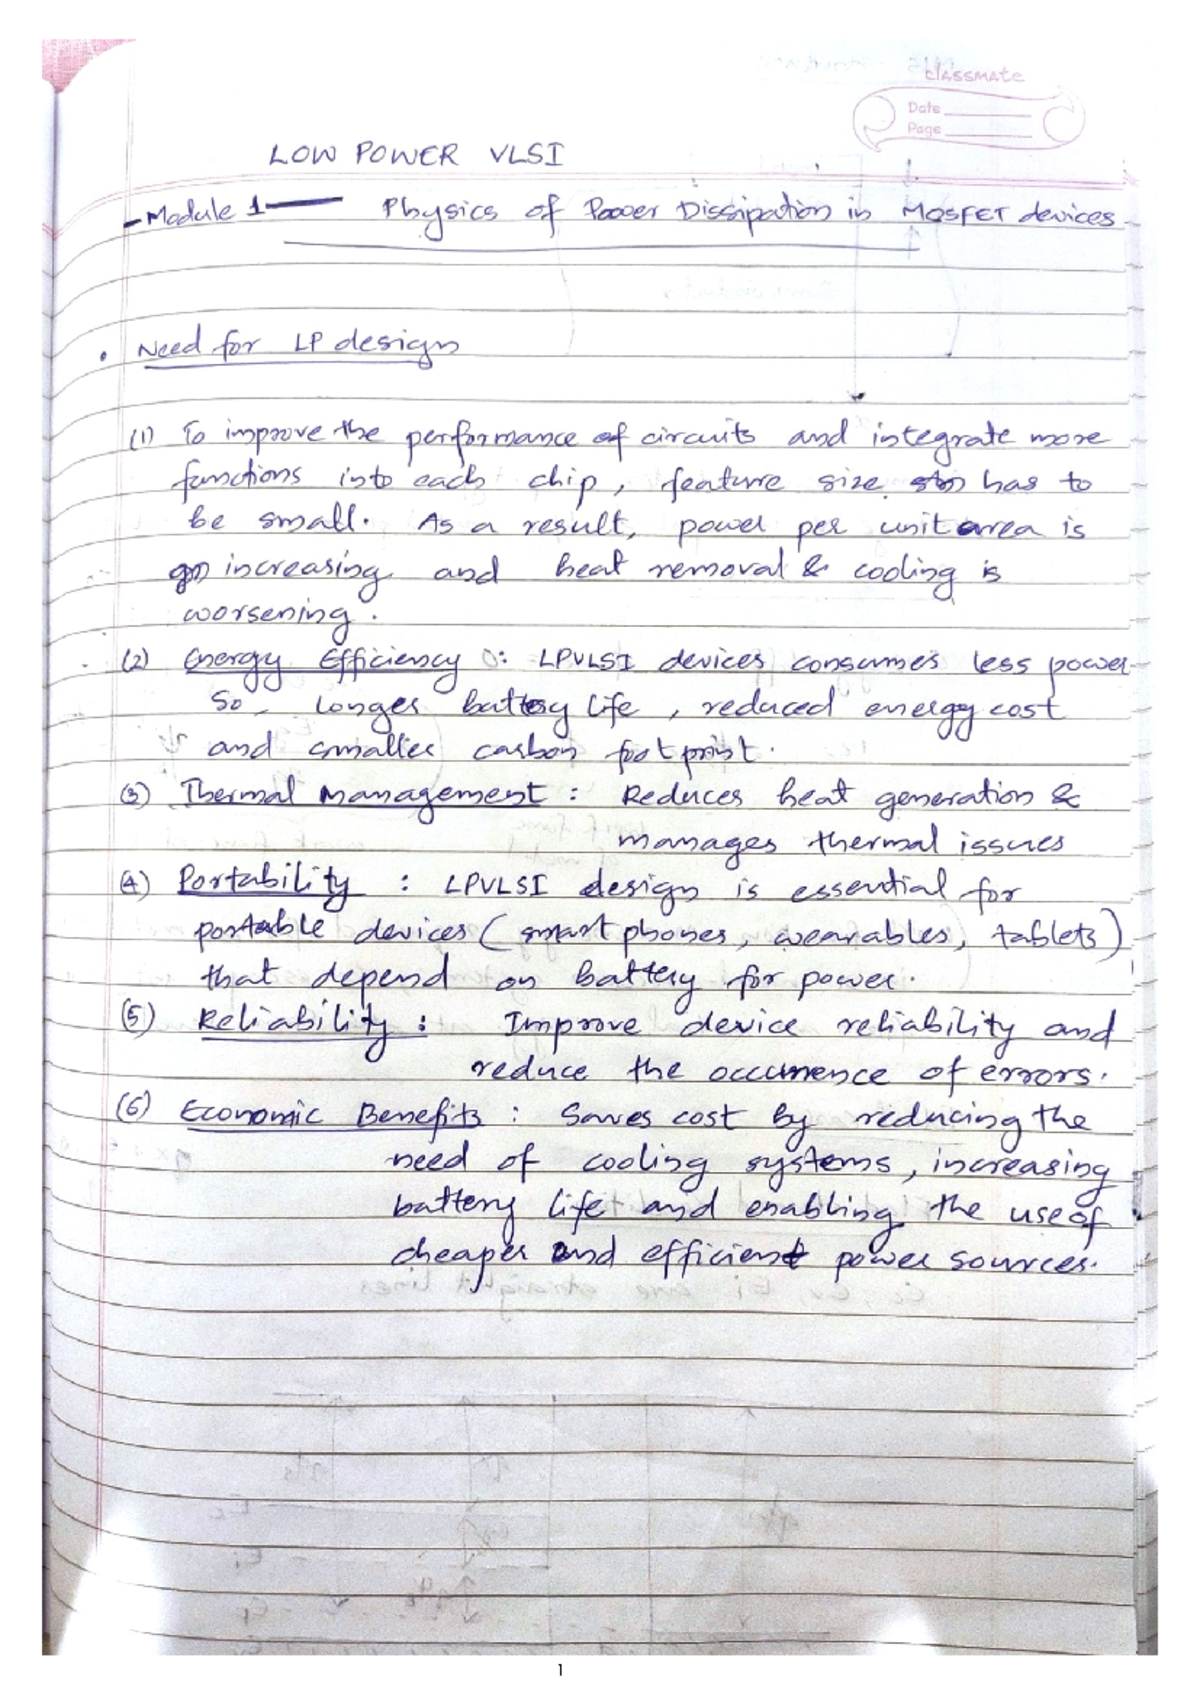 classmate
Date
Page
LOW POWER VLSI
- Module 1 — Physics of Power Dissipation in MOSFET devices
• Need for LP design
(1) To improve the performance of circuits and integrate more
functions into each chip, feature size has to
be small. As a result, power per unit area is
increasing and heat removal & cooling is
worsening.
(2) Energy Efficiency : LPVLSI devices consumes less power
So, Longer battery life, reduced energy cost
and smaller carbon footprint.
(3) Thermal Management : Reduces heat generation &
manages thermal issues
(4) Portability : LPVLSI design is essential for
portable devices (smart phones, wearables, tablets)
that depend on battery for power.
(5) Reliability : Improve device reliability and
reduce the occurrence of errors.
(6) Economic Benefits : Saves cost by reducing the
need of cooling systems, increasing
battery life and enabling the use of
cheaper and efficient power sources.
1